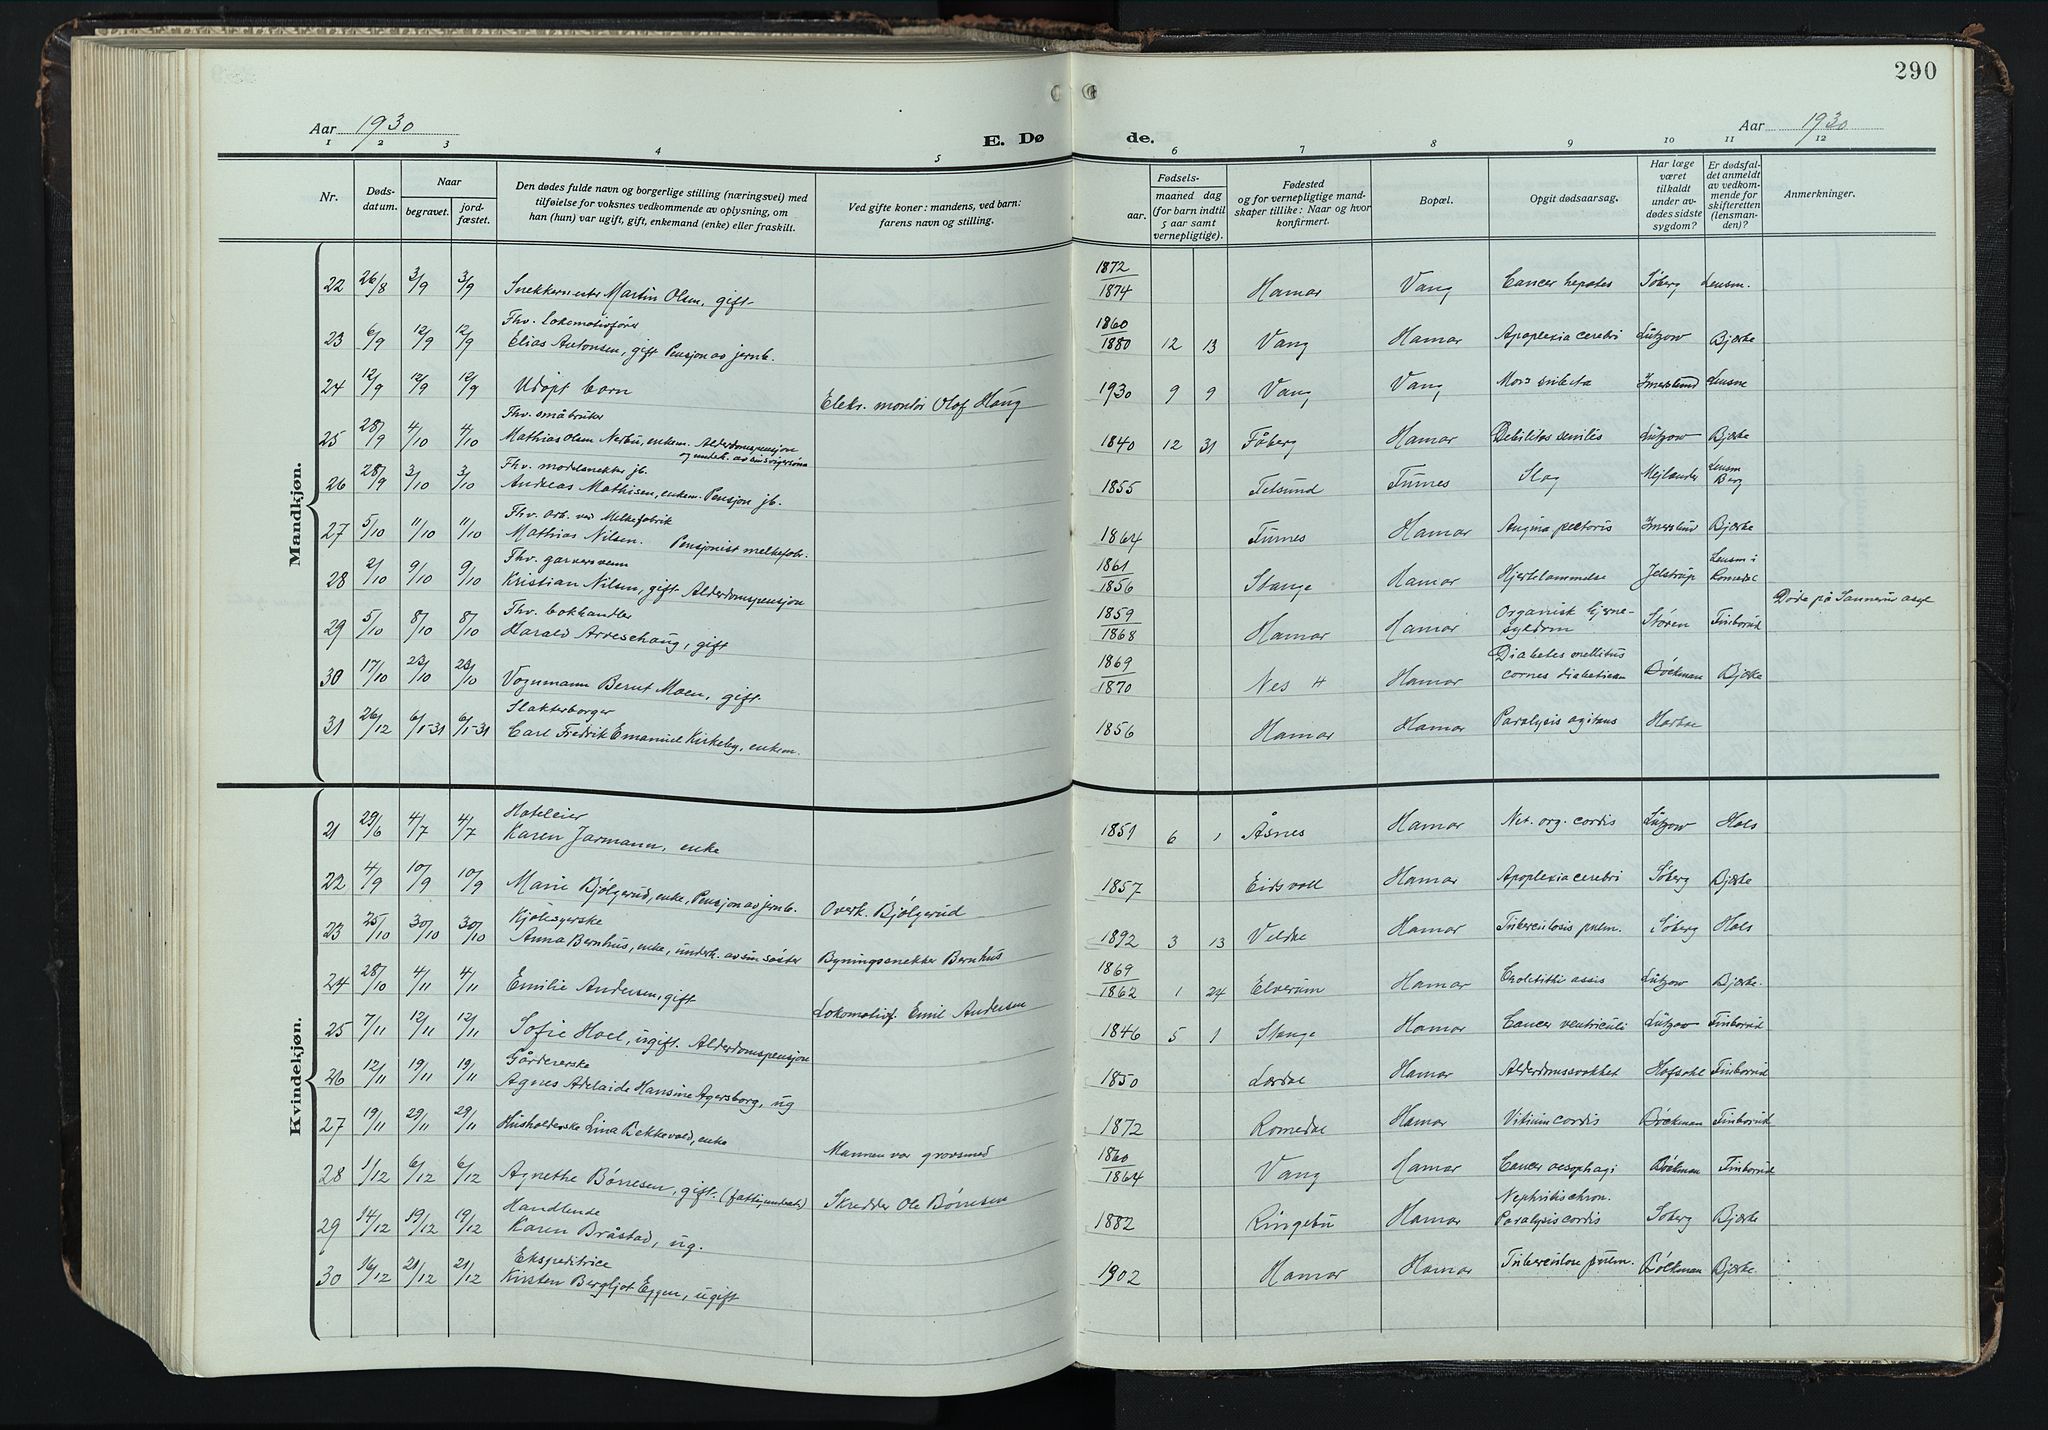 290
Aar 1930
E. Dø
de.
Aar 1930
1 2 3 4 5 6 7 8 9 10 11 12
Nr. Døds-datum. Naar begravet. jord-fæstet. Den dødes fulde navn og borgerlige stilling (næringsvei) med tilføielse for voksnes vedkommende av oplysning, om han (hun) var ugift, gift, enkemand (enke) eller fraskilt. Ved gifte koner: mandens, ved barn: farens navn og stilling. Fødsels- aar. maaned dag (for barn indtil 5 aar samt vernepligtige). Fødested og for vernepligtige mandskaper tillike: Naar og hvor konfirmert. Bopæl. Opgit dødsaarsag. Har læge været tilkaldt under avdødes sidste sygdom? Er dødsfaldet anmeldt av vedkommende for skifteretten (lensmanden)? Anmerkninger.
Mandkjøn.
22 26/8 3/9 3/9 Snekkermester Martin Olsen, gift 1872/1874 Hamar Vang Cancer hepates Søberg Lensm.
23 6/9 12/9 12/9 Fhv. Lokomotivfører
Elias Antonsen, gift Pensjon av jernb. 1860/1880 12 13 Vang Hamar Apoplexia cerebri Lützow Bjerke
24 12/9 12/9 12/9 Udøpt barn Elektr. montør Olaf Haug 1930 9 9 Vang Vang Mors subita Imerslund Lensm
25 28/9 4/10 4/10 Fhv. småbruker
Mathias Olsen Nerbu, enkem. Alderdomspensjon
og underh. av sin svigersønn 1840 12 31 Fåberg Hamar Debilitas senilis Lützow Bjerke
26 28/9 3/10 3/10 Fhv. modelsnekker jb.
Andreas Mathisen, enkem. Pensjon jb. 1855 Fetsund Furnes Slag Mejlænder Lensm Berg
27 5/10 11/10 11/10 Fhv. Arb. ved Melkefabrik
Mathias Nilsen. Pensjonist melkefabr. 1864 Furnes Hamar Angina pectoris Imerslund Bjerke
28 2/10 9/10 9/10 Fhv. garversvenn
Kristian Nilsen, gift. Alderdomspensjon 1861/1856 Stange Hamar Hjertelammelse Jelstrup Lensm i Romedal
29 5/10 8/10 8/10 Fhv. bokhandler
Harald Arveschoug, gift 1859/1868 Hamar Hamar Organisk hjernesykdom Støren Finborud Døde på Sannerud asyl
30 17/10 23/10 23/10 Vognmann Bernt Moen, gift 1869/1870 Nes H Hamar Diabetes mellitus
comes diabeticum Bøckman Bjerke
31 26/12 6/1-31 6/1-31 Slakterborger
Carl Fredrik Emanuel Kirkeby, enkem. 1856 Hamar Hamar Paralysis agitans Harboe
Kvindekjøn.
21 29/6 4/7 4/7 Hoteleier
Karen Jarmann, enke 1851 6 1 Åsnes Hamar Vit. org. cordis Lützow Hals
22 4/9 10/9 10/9 Marie Bjølgerud, enke, Pensjon av jernb. Overk. Bjølgerud 1857 Eidsvoll Hamar Apoplexia cerebri Søberg Bjerke
23 25/10 30/10 30/10 Kjolesyerske
Anna Bernhus, enke, underh. av sin søster Bygningssnekker Bernhus 1892 3 13 Veldre Hamar Tuberculosis pulm. Søberg Hals
24 28/10 4/11 4/11 Emilie Andersen, gift Lokomotivf. Emil Andersen 1869/1862 1 24 Elverum Hamar Cholelithiassis Lützow Bjerke.
25 7/11 12/11 12/11 Sofie Hoel, ugift. Alderdomspensjon 1846 5 1 Stange Hamar Cancer ventriculi Lützow Finborud
26 12/11 19/11 19/11 Gårdeierske
Agnes Adelaide Hansine Agersborg, ug 1850 Lærdal Hamar Alderdomssvakhet Hofsohl Finborud
27 19/11 29/11 29/11 Husholderske Lina Bekkevold, enke Mannen var grovsmed 1872 Romedal Hamar Vitium cordis Bøckman Finborud
28 1/12 6/12 6/12 Agnethe Børresen, gift. (fattigunderst.) Skredder Ole Børresen 1860/1864 Vang Hamar Cancer oesophagi Bøckman Finborud
29 14/12 19/12 19/12 Handlende
Karen Bråstad, ug. 1882 Ringebu Hamar Nephritis chron.
Paralysis cordis Søberg Bjerke
30 16/12 21/12 21/12 Ekspeditrice
Kirsten Bergljot Eggen, ugift 1902 Hamar Hamar Tuberculose pulm. Bøckman Bjerke.